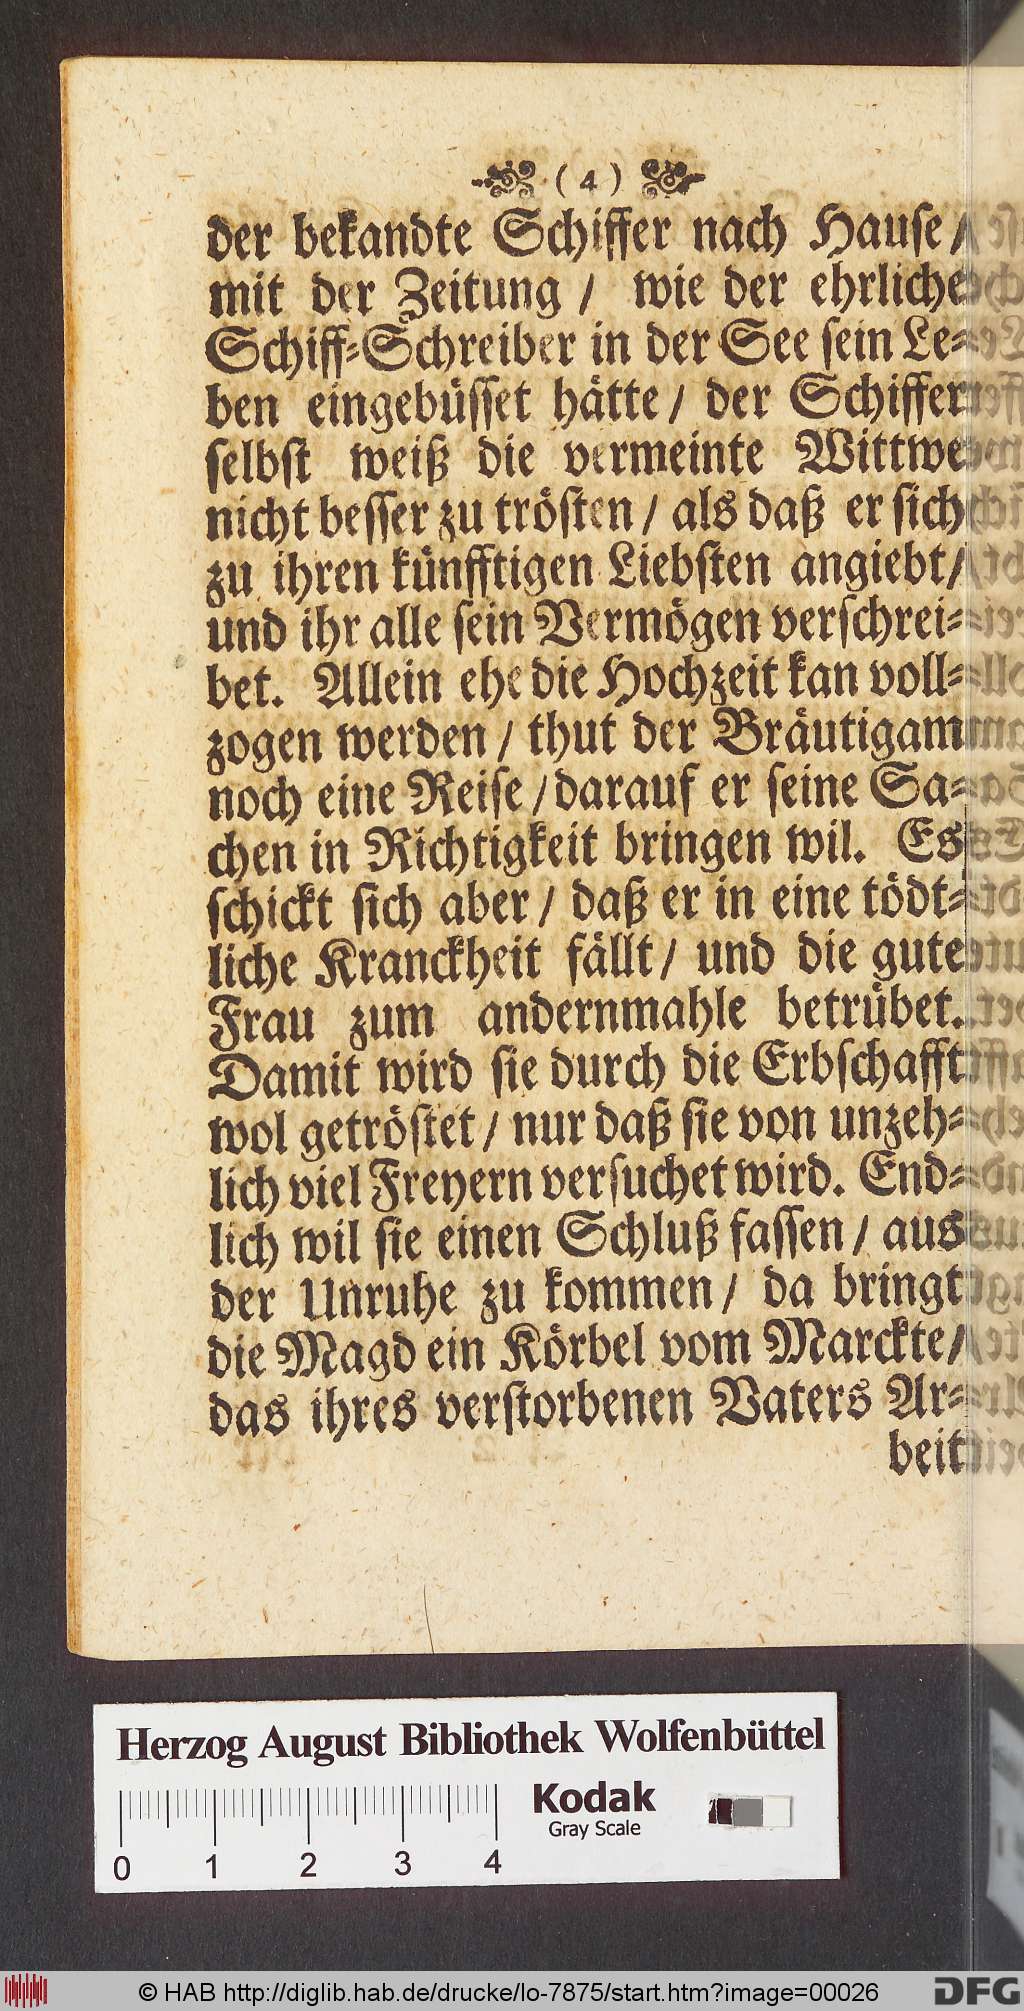 ( 4 )
der bekandte Schiffer nach Hause /
mit der Zeitung / wie der ehrliche
Schiff-Schreiber in der See sein Le-
ben eingebüsset hätte / der Schiffer
selbst weiß die vermeinte Wittwe
nicht besser zu trösten / als daß er sich
zu ihren künfftigen Liebsten angiebt /
und ihr alle sein Vermögen verschrei-
bet. Allein ehe die Hochzeit kan voll-
zogen werden / thut der Bräutigam
noch eine Reise / darauf er seine Sa-
chen in Richtigkeit bringen wil. Es
schickt sich aber / daß er in eine tödt-
liche Kranckheit fällt / und die gute
Frau zum andernmahle betrübet.
Damit wird sie durch die Erbschafft
wol getröstet / nur daß sie von unzeh-
lich viel Freyern versuchet wird. End-
lich wil sie einen Schluß fassen / aus
der Unruhe zu kommen / da bringt
die Magd ein Körbel vom Marckte /
das ihres verstorbenen Vaters Ar-
beit
Herzog August Bibliothek Wolfenbüttel
Kodak
Gray Scale
0 1 2 3 4
© HAB http://diglib.hab.de/drucke/lo-7875/start.htm?image=00026
DFG